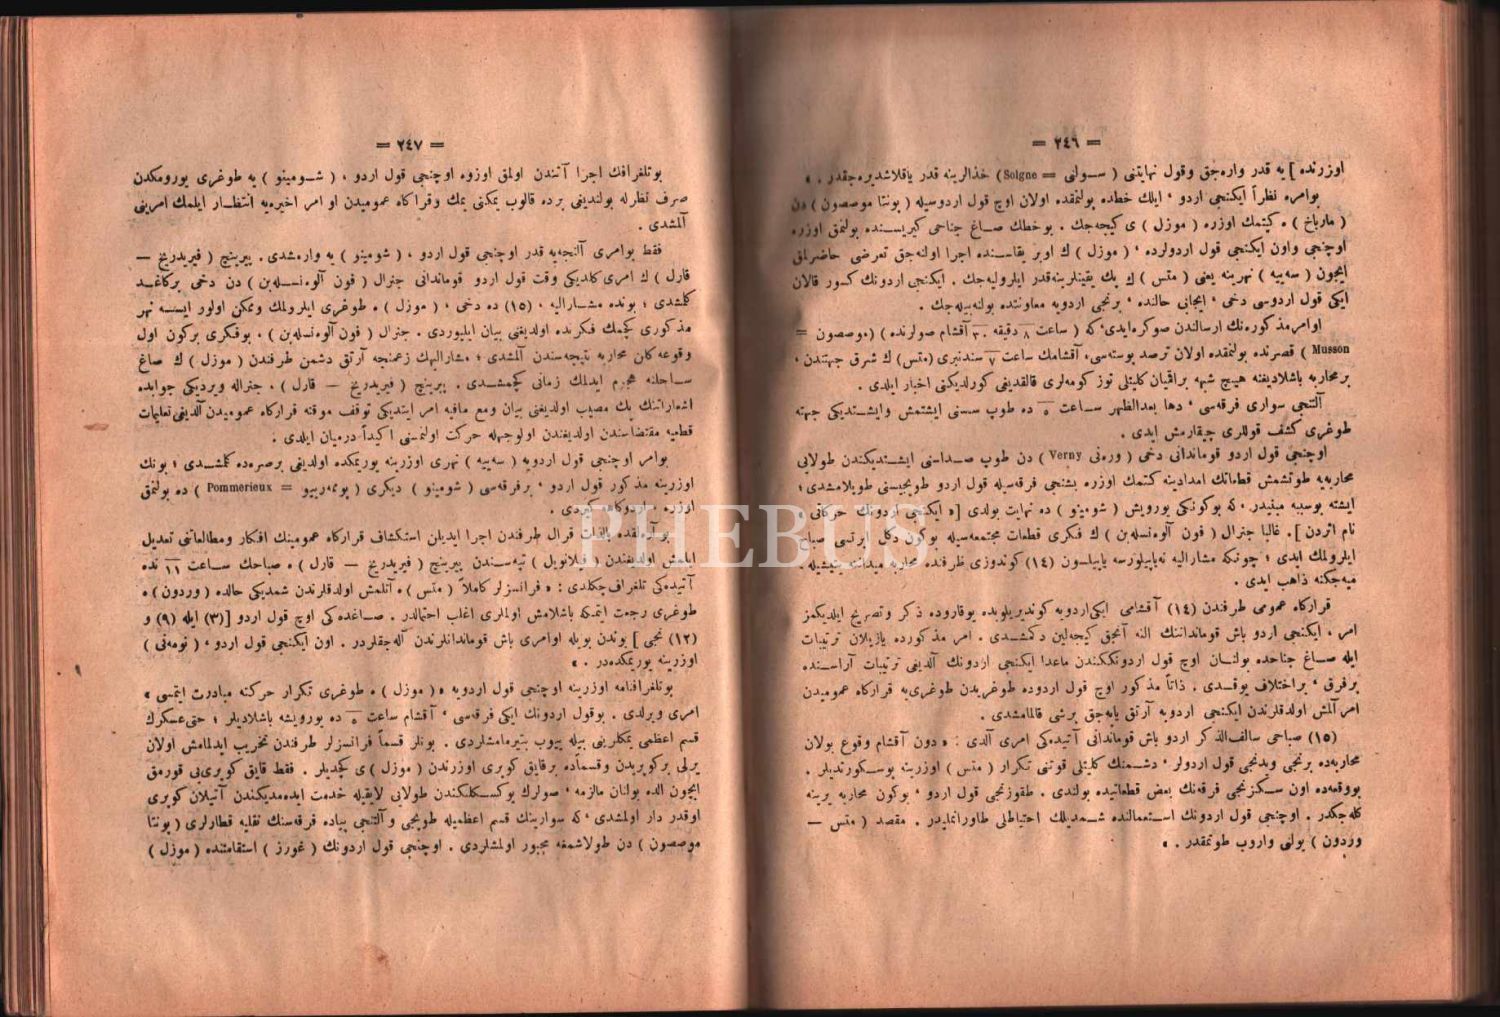 = ٢٤٦ =
اوزرنده ] يه قدر واره‌جق وقول نهايتنى ( سـولنى = Solgne) خذالرينه قدر ياقلاشديره‌جقدر . »
بوامره نظراً ايكنجى اردو ، ايلك خطده بولنمقده اولان اوچ قول اردوسيله ( پونتا موصصون ) دن
( مارباخ ) ه كيتمك اوزره ( موزل ) ى كيچه‌جك . بوخطك صـاغ جناحى كيريسـنده بولنمق اوزره
اوچنجى واون ايكنجى قول اردولرده ، ( موزل ) ك اوبر يقاسـنده اجرا اولنه‌جق تعرضى حاضرلمق
ايچون ( سه‌ييه ) نهرينه يعنى ( متس ) ك پك يقينلرينه‌قدر ايلروليه‌جك . ايكنجى اردونك كسور قالان
ايكى قول اردوسى دخى ، ايجابى حالنده ، برنجى اردويه معاونتده بولنه‌بيله‌جك .
اوامر مذكوره‌نك ارسالندن صوكره‌ايدى‌كه ( ساعت ٨ دقيقه ٣٠ آقشام صولرنده ) (موصصون =
Musson ) قصرنده بولنمقده اولان ترصد پوسته‌سى، آقشامك ساعت ٧ سندنبرى (متس) ك شرق جهتندن ،
برمحاربه باشلاديغنه هيچ شبهه براقميان كليتلى توز كومه‌لرى قالقديغى كورلديكنى اخبار ايلدى .
آلتنجى سوارى فرقه‌سى ، دها بعدالظهر سـاعت ٥ ده طوپ سسنى ايشتمش وايشـتديكى جهته
طوغرى كشف قوللرى چيقارمش ايدى .
اوچنجى قول اردو قوماندانى دخى ( ورنى Verny ) دن طوپ صـداسنى ايشـتديكندن طولايى
محاربه‌يه طوتشمش قطعاتك امدادينه كتمك اوزره بشنجى فرقه‌سيله قول اردو طوبجيسنى طوپلامشدى ؛
ايشته بوسببه مبنيدر ، كه بوكونكى يورويش ( شومينو ) ده نهايت بولدى [« ايكنجى اردونك حركاتى »
نام اثردن ] . غالبا جنرال ( فون آلوه‌نسله‌بن ) ك فكرى قطعات مجتمعه‌سيله بوكون دكل ايرتسى صباح
ايلرولمك ايدى ؛ چونكه مشاراليه نه‌ياپيلورسه ياپيلسون (١٤) كوندوزى ظرفنده محاربه ميداننه يتيشيله
ميه‌جكنه ذاهب ايدى .
قراركاه عمومى طرفندن (١٤) آقشامى ايكى‌اردويه كوندريلوبده يوقاروده ذكر وتصريح ايلديكمز
امر ، ايكنجى اردو باش قوماندانتنك النه آنجق كيجه‌لين دكمشـدى . امر مذكورده يازيلان ترتيبات
ايله صـاغ جناحده بولنـان اوچ قول اردونككندن ماعدا ايكنجى اردونك آلديغى ترتيبات آراسـنده
برفرق ، براختلاف يوقـدى . ذاتاً مذكور اوچ قول اردوده طوغريدن طوغرى‌يه قراركاه عموميدن
امر آلمش اولدقلرندن ايكنجى اردويه آرتق ياپه‌جق برشى قالمامشدى .
(١٥) صباحى سالف‌الذكر اردو باش قوماندانى آتيده‌كى امرى آلدى : « دون آقشام وقوع بولان
محاربه‌ده برنجى ويدنجى قول اردولر ، دشـمنك كليتلى قوتنى تكرار ( متس ) اوزرينه پوسـكورتديلر .
بووقعه‌ده اون سـكزنجى فرقه‌نك بعض قطعاتيده بولندى . طقوزنجى قول اردو ، بوكون محاربه يرينه
كله‌جكدر . اوچنجى قول اردونك اسـتعمالنده شـمديلك احتياطلى طاورانملیدر . مقصد ( متس —
وردون ) يولنى واروب طوتمقدر . »
= ٢٤٧ =
بوتلغرافك اجرا آتندن اولمق اوزوه اوچنجى قول اردو ، ( شـومينو ) يه طوغرى يورومكدن
صرف نظرله بولنديغى يرده قالوب يمكنى يمك وقراكاه عموميدن او امر اخيره‌يه انتظـار ايلمك امرينى
آلمشدى .
فقط بوامرى آلنجه‌يه قدر اوچنجى قول اردو ، ( شومينو ) يه وارمشدى . پيرينچ ( فيريدريخ —
قارل ) ك امرى كلديكى وقت قول اردو قوماندانى جنرال ( فون آلوه‌نسـله‌بن ) دن دخى بركاغـد
كلمشدى ؛ بونده مشـاراليه ، (١٥) ده دخى ، ( موزل ) ه طوغرى ايلرولمك وممكن اولور ايسـه نهر
مذكورى كچمك فكرنده اولديغنى بيان ايليوردى . جنرال ( فون آلوه‌نسله‌بن ) ، بوفكرى بركون اول
وقوعه‌كلن محاربه نتيجه‌سندن آلمشدى ؛ مشاراليهك زعمنجه آرتق دشمن طرفندن ( موزل ) ك صاغ
سـاحلنه هجوم ايدلمك زمانى كچمشـدى . پيرينچ ( فيريدريخ — قارل ) ، جنراله ويرديكى جوابده
اشعاراتنك پك مصيب اولديغنى بيان ومع مافيه امر ايتديكى توقف موقته قراركاه عموميدن آلديغى تعليمات
قطعيه مقتضاسندن اولديغندن اولوجهله حركت اولنمسنى اكيداً درميان ايلدى .
بوامر اوچنجى قول اردويه ( سه‌ييه ) نهرى اوزرينه يوريمكده اولديغى برصره‌ده كلمشـدى ؛ بونك
اوزرينه مذكور قول اردو ، برفرقه‌سى ( شومينو ) ديكرى ( پومه‌ريو = Pommerieux ) ده بولنمق
اوزره ، اردوكاه كيردى .
بوآرالقده بالذات قرال طرفندن اجرا ايديلن استكشاف قراركاه عمومينك افكار ومطالعاتنى تعديل
ايلمش اولديغندن ( فيلانويل ) تپه‌سـندن پيرينچ ( فيريدريخ — قارل ) ه صباحك سـاعت ١١ نده
آتيده‌كى تلغراف چكلدى : « فرانسزلر كاملاً ( متس ) ه آتلمش اولدقلرندن شمديكى حالده ( وردون ) ه
طوغرى رجعت ايتمكه باشلامش اولملرى اغلب احتمالدر . صـاغده‌كى اوچ قول اردو [(٣) ايله (٩) و
(١٢) نجى ] بوندن بويله اوامرى باش قوماندانلرندن آله‌جقلردر . اون ايكنجى قول اردو ، ( نومه‌نى )
اوزرينه يوريمكده‌در . »
بوتلغرافنامه اوزرينه اوچنجى قول اردويه « ( موزل ) ه طوغرى تكرار حركته مبادرت ايتمسى »
امرى ويرلدى . بوقول اردونك ايكى فرقه‌سى ، آقشام ساعت ٥ ده يورويشه باشلاديلر ؛ حتى‌عسكرك
قسم اعظمى يمكلرينى بيله يييوب بتيرمه‌مشلردى . بونلر قسماً فرانسزلر طرفندن تخريب ايدلمامش اولان
يرلى بركوپريدن وقسماًده برقايق كوپرى اوزرندن ( موزل ) ى كچديلر . فقط قايق كوپرى‌يى قورمق
ايچون الده بولنان مالزمه ، صولرك يوكسـكلكندن طولايى لايقيله خدمت ايده‌مديكندن آتيلان كوپرى
اوقدر دار اولمشدى ، كه سوارينك قسم اعظميله طوپجى وآلتنجى پياده فرقه‌سنك نقليه قطارلرى ( پونتا
موصصون ) دن طولاشمغه مجبور اولمشلردى . اوچنجى قول اردونك ( غورز ) استقامتنده ( موزل )
PHEBUS